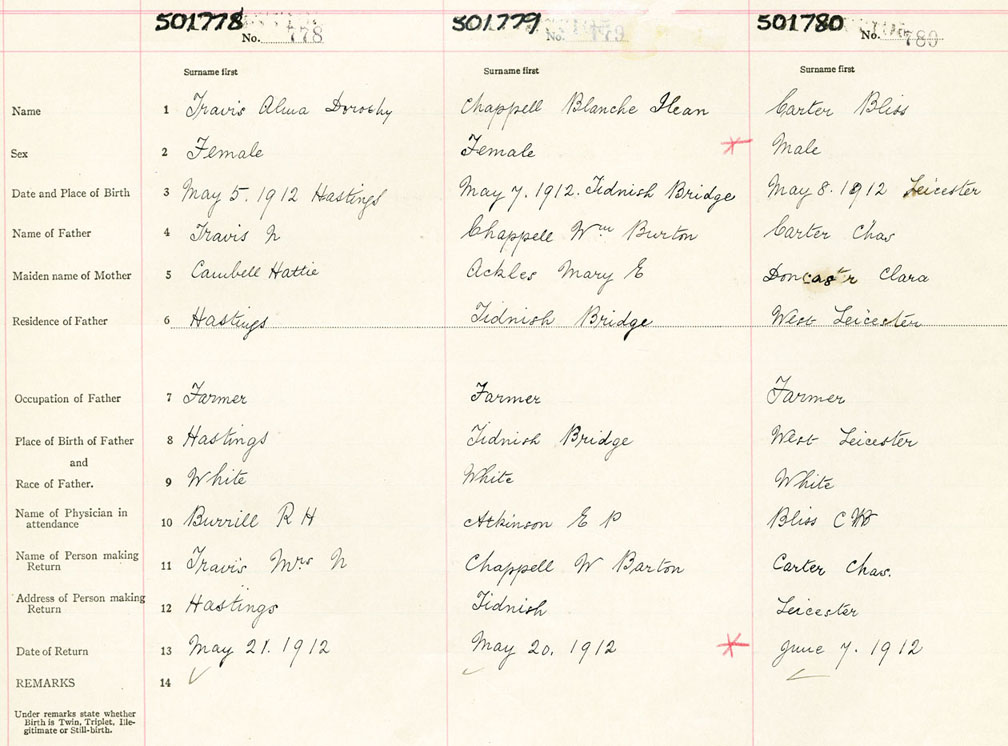 501778 501779 501780
No. 778 No. 779 No. 780
Surname first Surname first Surname first
Name 1 Travis Alma Dorothy Chappell Blanche Ilean Carter Bliss
Sex 2 Female Female Male
Date and Place of Birth 3 May 5. 1912 Hastings May 7. 1912. Tidnish Bridge May 8. 1912 Leicester
Name of Father 4 Travis N Chappell Wm Burton Carter Chas
Maiden name of Mother 5 Cambell Hattie Ackles Mary E Doncast'r Clara
Residence of Father 6 Hastings Tidnish Bridge West Leicester
Occupation of Father 7 Farmer Farmer Farmer
Place of Birth of Father 8 Hastings Tidnish Bridge West Leicester
and
Race of Father. 9 White White White
Name of Physician in
attendance 10 Burrill R H Atkinson E P Bliss C W
Name of Person making
Return 11 Travis Mrs N Chappell W Barton Carter Chas.
Address of Person making
Return 12 Hastings Tidnish Leicester
Date of Return 13 May 21. 1912 May 20. 1912 June 7. 1912
REMARKS 14
Under remarks state whether
Birth is Twin, Triplet, Ille-
gitimate or Still-birth.